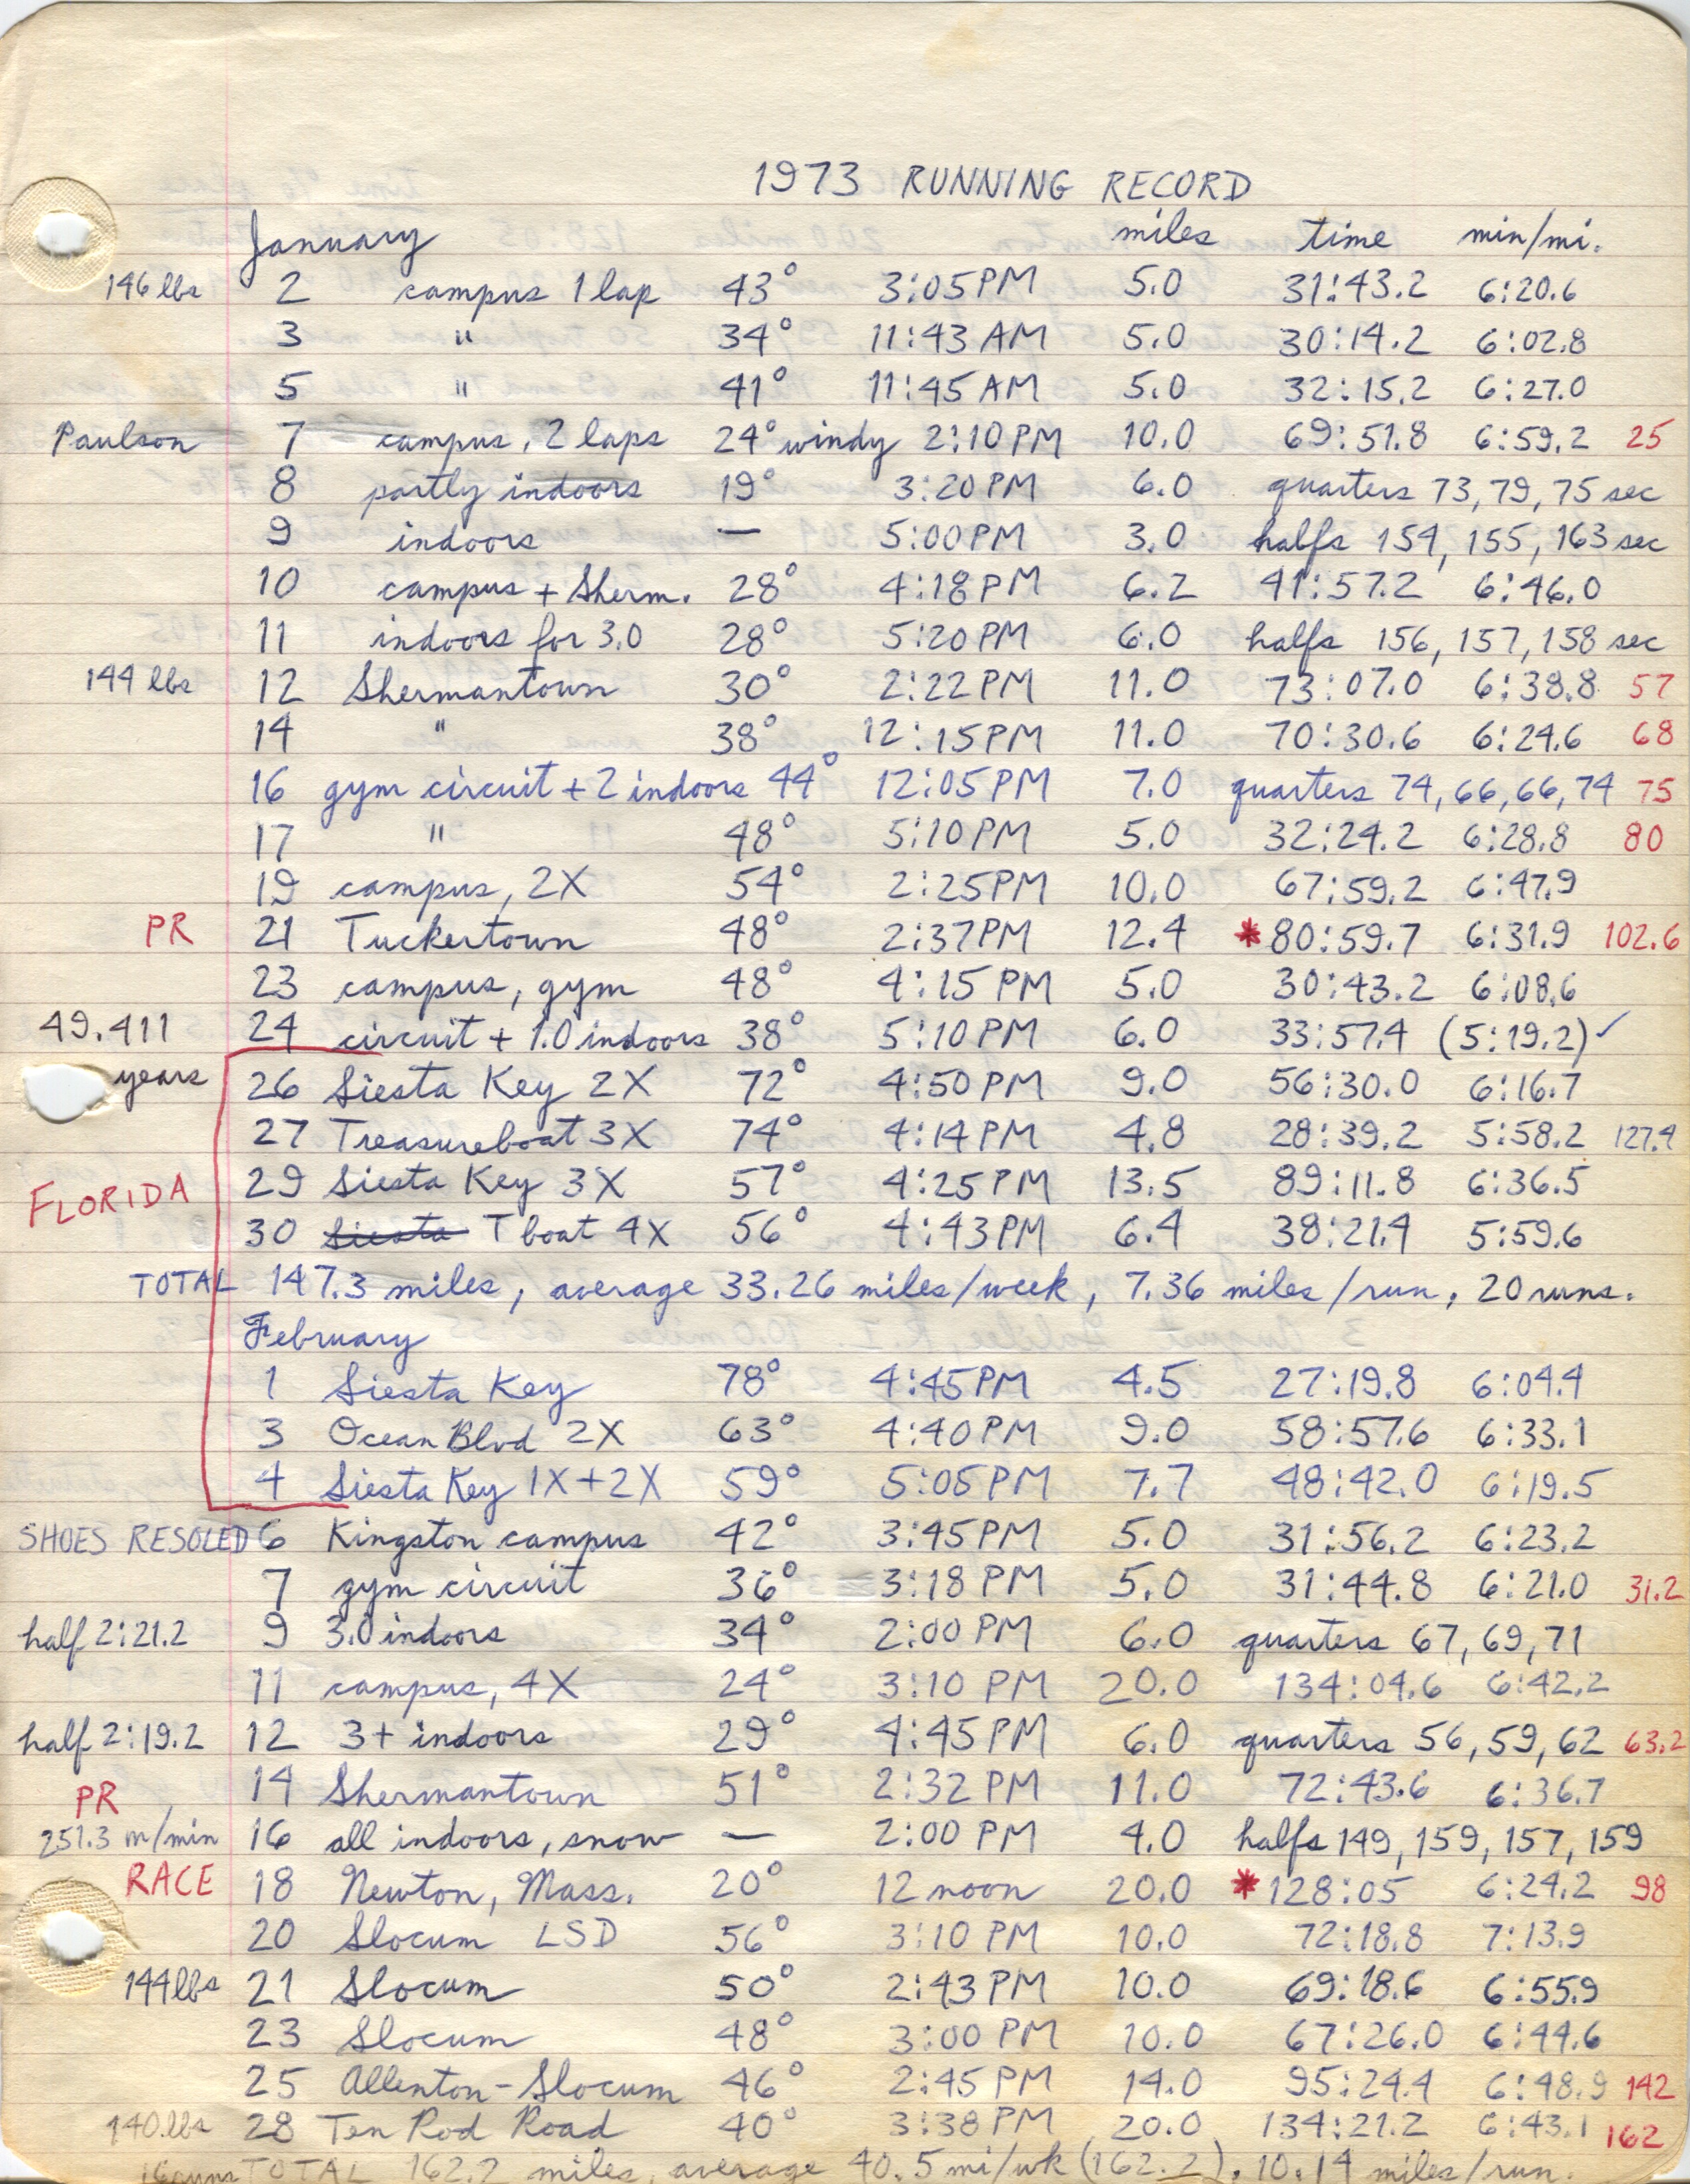 1973 RUNNING RECORD
January miles time min/mi.
146 lbs 2 campus 1 lap 43° 3:05PM 5.0 31:43.2 6:20.6
3 " 34° 11:43 AM 5.0 30:14.2 6:02.8
5 " 41° 11:45 AM 5.0 32:15.2 6:27.0
Paulson 7 campus, 2 laps 24° windy 2:10PM 10.0 69:51.8 6:59.2 25
8 partly indoors 19° 3:20PM 6.0 quarters 73, 79, 75 sec
9 indoors — 5:00PM 3.0 halfs 154, 155, 163 sec
10 campus + Sherm. 28° 4:18PM 6.2 41:57.2 6:46.0
11 indoors for 3.0 28° 5:20PM 6.0 halfs 156, 157, 158 sec
144 lbs 12 Shermantown 30° 2:22PM 11.0 73:07.0 6:38.8 57
14 " 38° 12:15PM 11.0 70:30.6 6:24.6 68
16 gym circuit + 2 indoors 44° 12:05PM 7.0 quarters 74, 66, 66, 74 75
17 " 48° 5:10PM 5.0 32:24.2 6:28.8 80
19 campus, 2X 54° 2:25PM 10.0 67:59.2 6:47.9
PR 21 Tuckertown 48° 2:37PM 12.4 *80:59.7 6:31.9 102.6
23 campus, gym 48° 4:15 PM 5.0 30:43.2 6:08.6
49.411 24 circuit + 1.0 indoors 38° 5:10PM 6.0 33:57.4 (5:19.2)✓
years 26 Siesta Key 2X 72° 4:50PM 9.0 56:30.0 6:16.7
27 Treasureboat 3X 74° 4:14PM 4.8 28:39.2 5:58.2 127.4
FLORIDA 29 Siesta Key 3X 57° 4:25PM 13.5 89:11.8 6:36.5
30 Siesta T boat 4X 56° 4:43PM 6.4 38:21.4 5:59.6
TOTAL 147.3 miles, average 33.26 miles/week, 7.36 miles/run, 20 runs.
February
1 Siesta Key 78° 4:45PM 4.5 27:19.8 6:04.4
3 Ocean Blvd 2X 63° 4:40PM 9.0 58:57.6 6:33.1
4 Siesta Key 1X+2X 59° 5:05PM 7.7 48:42.0 6:19.5
SHOES RESOLED 6 Kingston campus 42° 3:45PM 5.0 31:56.2 6:23.2
7 gym circuit 36° 3:18 PM 5.0 31:44.8 6:21.0 31.2
half 2:21.2 9 3.0 indoors 34° 2:00PM 6.0 quarters 67, 69, 71
11 campus, 4X 24° 3:10 PM 20.0 134:04.6 6:42.2
half 2:19.2 12 3+ indoors 29° 4:45PM 6.0 quarters 56, 59, 62 63.2
PR 14 Shermantown 51° 2:32 PM 11.0 72:43.6 6:36.7
251.3 m/min 16 all indoors, snow — 2:00 PM 4.0 halfs 149, 159, 157, 159
RACE 18 Newton, Mass. 20° 12 noon 20.0 *128:05 6:24.2 98
20 Slocum LSD 56° 3:10 PM 10.0 72:18.8 7:13.9
144 lbs 21 Slocum 50° 2:43 PM 10.0 69:18.6 6:55.9
23 Slocum 48° 3:00 PM 10.0 67:26.0 6:44.6
25 Allenton-Slocum 46° 2:45 PM 14.0 95:24.4 6:48.9 142
140 lbs 28 Ten Rod Road 40° 3:38 PM 20.0 134:21.2 6:43.1 162
16 runs TOTAL 162.2 miles, average 40.5 mi/wk (162.2), 10.14 miles/run